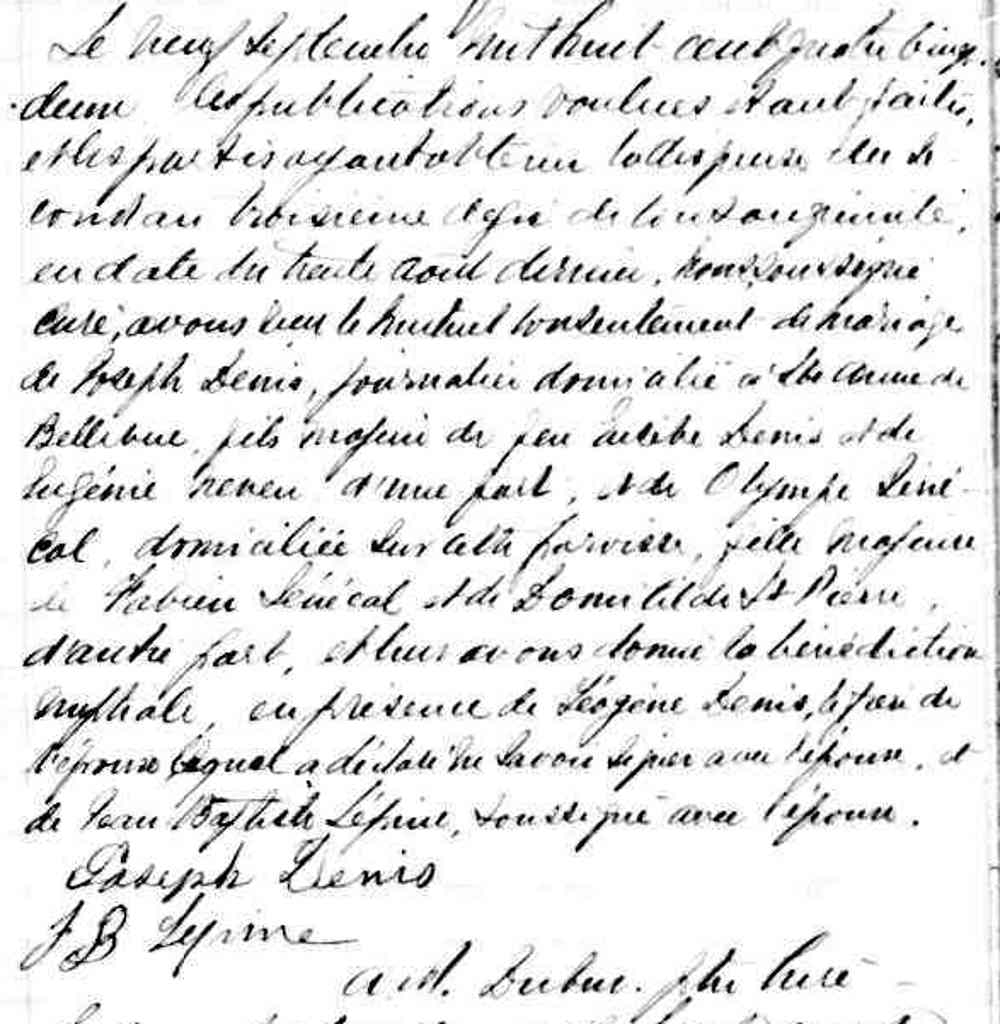 Le neuf Septembre mil huit cent quatre vingt
deux les publications voulues étant faites,
et les parties ayant obtenu la dispense du se
cond au troisième degré de consanguinité,
en date du trente Août dernier, nous soussigné
curé, avons reçu le mutuel consentement de mariage
de Joseph Denis, journalier domicilié à Ste Anne de
Bellevue, fils majeur de feu Denis et de
Eugénie neveu d'une part, et de Olympe Séné-
cal, domiciliée sur cette paroisse, fille majeure
de Fabien Sénécal et de Domitilde St Pierre,
d'autre part, et leur avons donné la bénédiction
nuptiale, en présence de Léogène Denis, le frère de
l'époux lequel a déclaré ne savoir signer avec l'épouse, et
de Jean Baptiste Lépine, soussigné avec l'époux.
Joseph Denis
J B Lepine
Dubuc. Ptre Curé